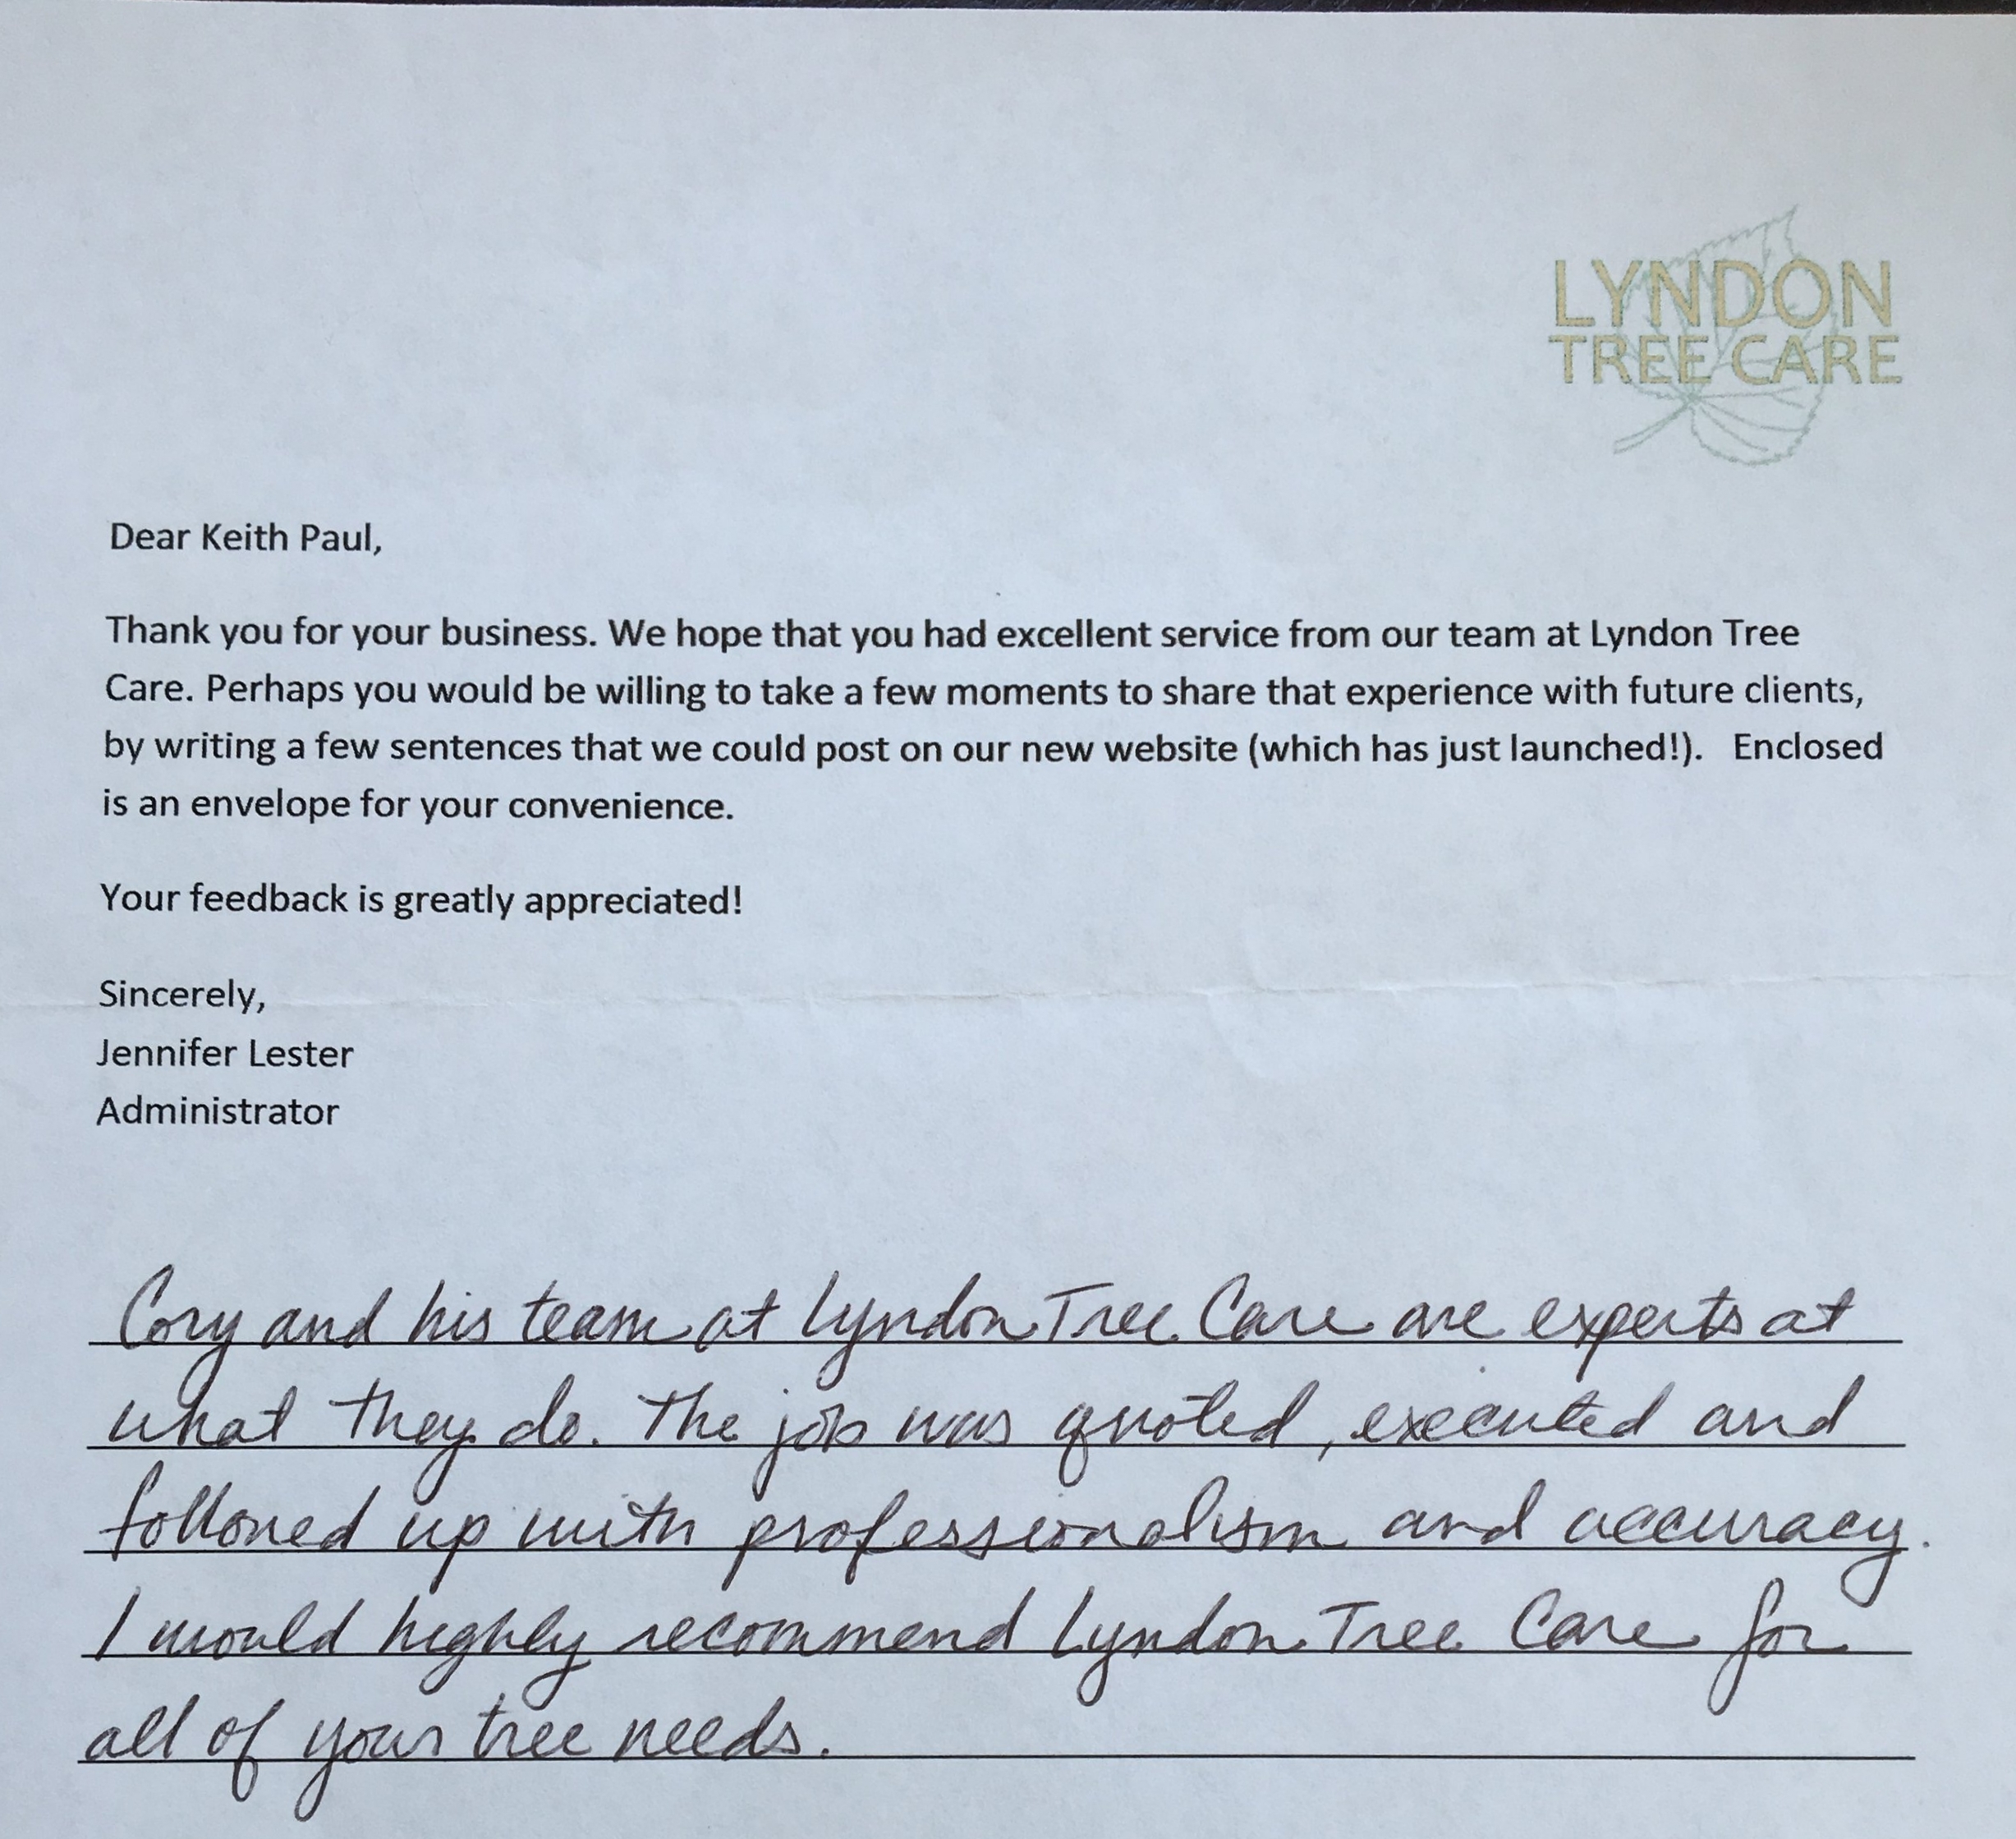 LYNDON
TREE CARE
Dear Keith Paul,
Thank you for your business. We hope that you had excellent service from our team at Lyndon Tree
Care. Perhaps you would be willing to take a few moments to share that experience with future clients,
by writing a few sentences that we could post on our new website (which has just launched!). Enclosed
is an envelope for your convenience.
Your feedback is greatly appreciated!
Sincerely,
Jennifer Lester
Administrator
Cory and his team at Lyndon Tree Care are experts at
what they do. The job was quoted, executed and
followed up with professionalism and accuracy.
I would highly recommend Lyndon Tree Care for
all of your tree needs.